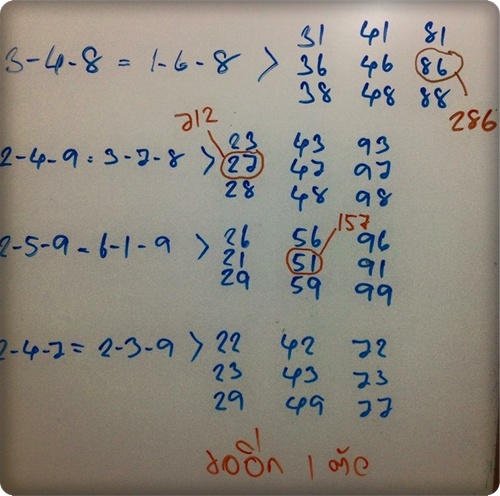 31 41 81
3-4-8 = 1-6-8 > 36 46 86
38 48 88
286
712
23 43 93
2-4-9 = 3-7-8 > 27 47 97
28 48 98
157
26 56 96
2-5-9 = 6-1-9 > 21 51 91
29 59 99
2-4-7 = 2-3-9 > 22 42 72
23 43 73
29 49 77
รออีก 1 ตัว